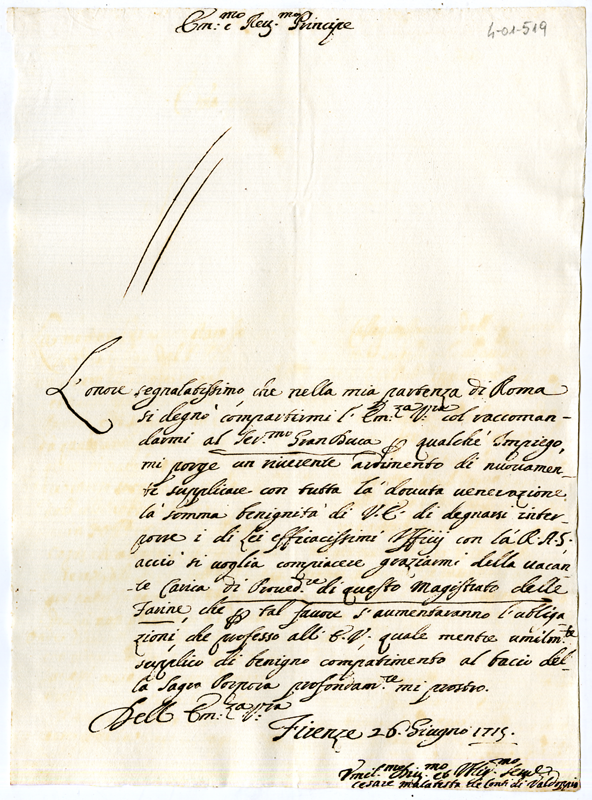 Em:mo e Rev:mo Principe
4-01-519
L'onore segnalatissimo che nella mia partenza di Roma
si degnò compartirmi l'Em:za Vra col raccoman-
darmi al Ser:mo Gran Duca qualche Impiego,
mi porge un riverente ardimento di nuovamen-
te supplicare con tutta la dovuta venerazione
la somma benignità di V.E. di degnarsi inter-
porre i di Lei efficacissimi Uffizij con la R.A.S.
acciò si voglia compiacere graziarmi della vacan-
te Carica di Proved:re di questo Magistrato delle
Farine, che tal favore s'aumentaranno l'obliga
zioni, che professo all'E.V. quale mentre umilm:te
supplico di benigno compatimento al bacio del-
la Sagra Porpora profondam:te mi prostro.
Dell'Em:za Vra
Firenze 26. Giugno 1715.
Umil:mo Div:mo et Obl:mo
Cesare Malatesta de Conti di